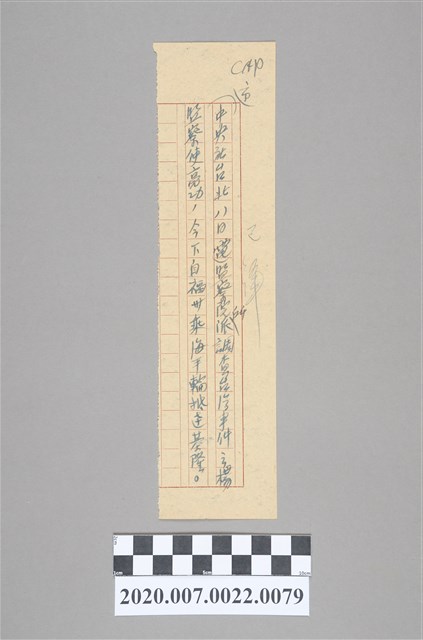 CAP
中央社台北八日電監察院所派調查台灣事件之楊
監察使亮功，今下自福州乘海平輪抵達基隆。
1cm
5cm
10cm
2020.007.0022.0079